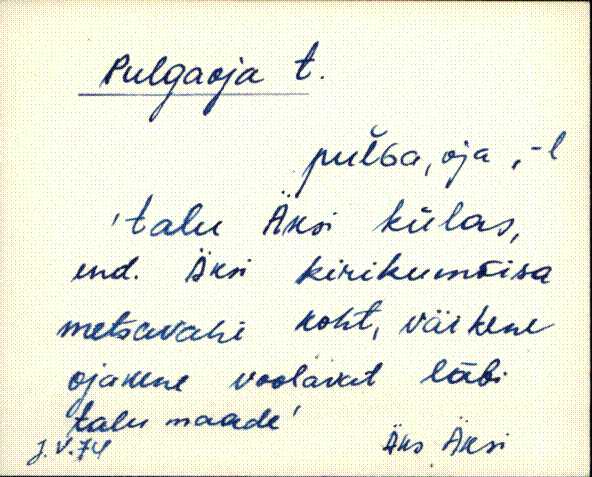 Pulgaoja t.
pul̆Ga, oja, -l
'talu Äksi külas,
end. Äksi kirikumõisa
metsavahi koht, väikene
ojakene voolavat läbi
talu maade'
J. V. 74 Äks Äksi